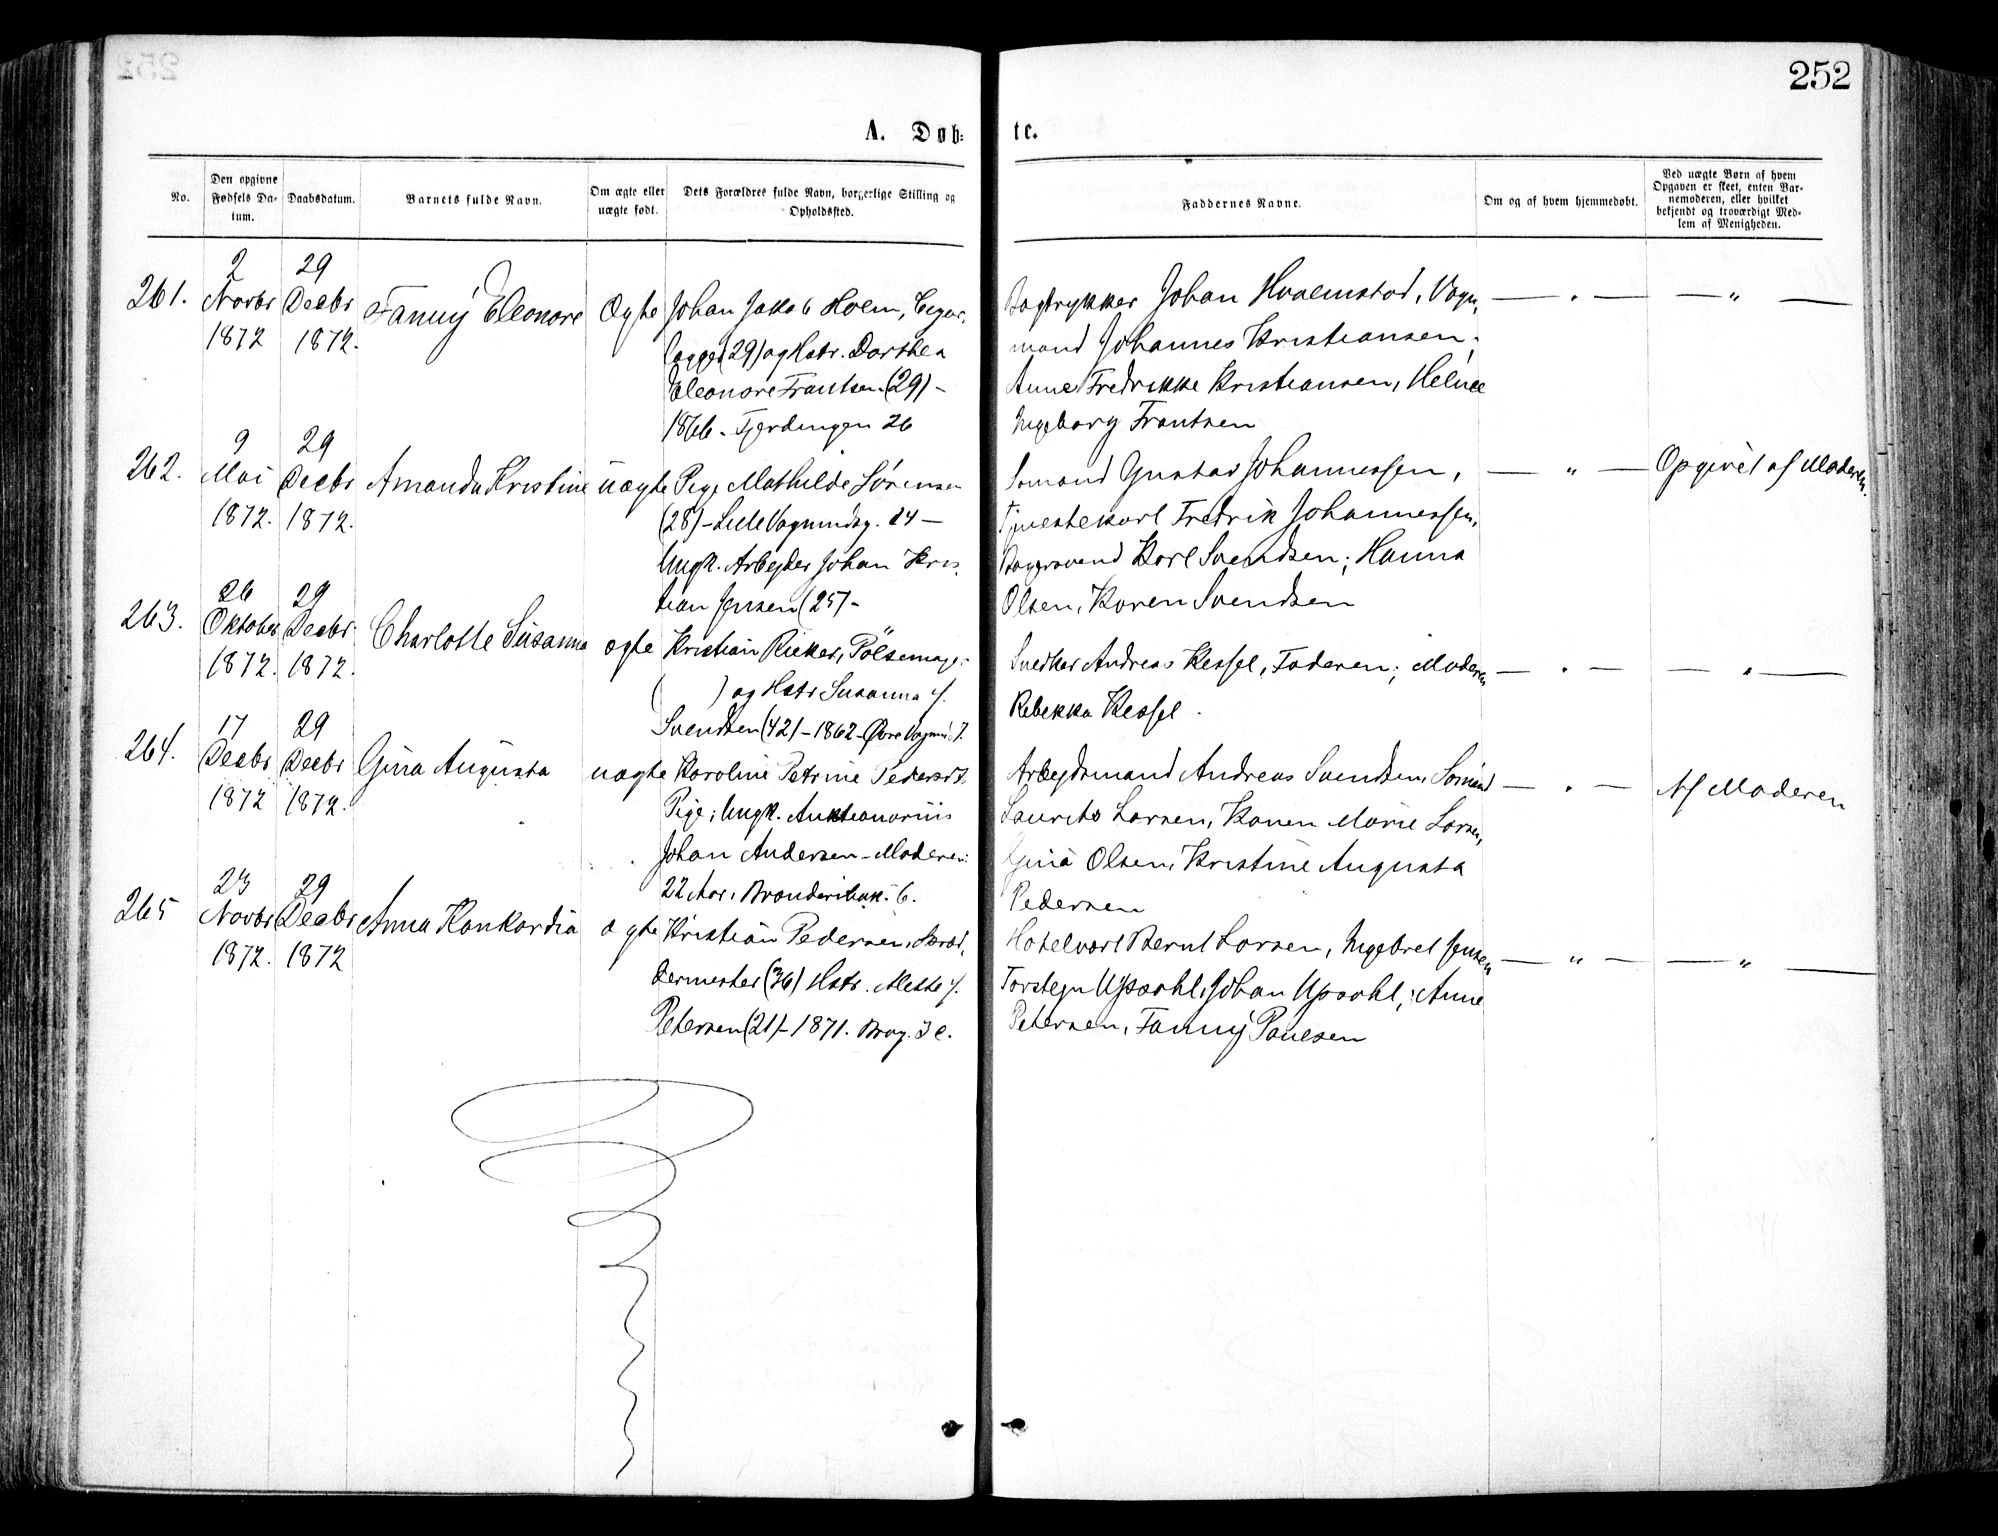 252
A. Døb-
te.
No.
Den opgivne Fødsels Da-
tum.
Daabsdatum.
Barnets fulde Navn.
Om ægte eller
uægte født.
Dets Forældres fulde Navn, borgerlige Stilling og
Opholdssted.
Faddernes Navne.
Om og af hvem hjemmedøbt.
Ved uægte Børn af hvem
Opgaven er skeet, enten Bar-
nemoderen, eller hvilket
bekjendt og troværdigt Med-
lem af Menigheden.
261.
2
Novbr
1872
29
Decbr
1872.
Fanny Eleonore
Ægte
Johan Jakob Holm, Cigar-
(29) og Hstr. Dorthea
Eleonore Frantsen (29) –
1866 - Fjerdingen 26
Bogtrykker Johan Hvalmstad, Vogn-
mand Johannes Kristiansen;
Anne Fredrikke Kristiansen,
Ingeborg Frantsen
— " —
— " —
262.
9
Mai
1872.
29
Decbr
1872.
Amanda Kristine
uægte
Pige Mathilde Sørensen
(28) – Lille Vognmdsg. 14 –
Ungk. Arbejder Johan Kris-
tian Jensen (25) –
Sømand Gustav Johannessen,
Tjenestekarl Fredrik Johannessen,
Karl Svendsen; Hanna
Olsen, Karen Svendsen
— " —
Opgivet af Moderen.
263.
26
Oktober
1872.
29
Decbr
1872.
Charlotte Susanna
ægte
Kristian Rieker, Pölsemager
( ) og Hstr Susanna f.
Svendsen (42) – 1862 – Øvre Vognm 7.
Snedker Andreas Kessel, Faderen; Moderen
Rebekka Kessel.
— " —
— " —
264.
17
Decbr
1872
29
Decbr
1872.
Gina Augusta
uægte
Karoline Petrine Pedersdt.
Pige; Ungk. Auktionarius
Johan Andersen – Moderen:
22 Aar,
Arbejdsmand Andreas Svendsen, Sømand
Laurits Larsen, Konen Marie Larsen,
Gina Olsen, Kristine Augusta
Pedersen
— " —
Af Moderen
265
23
Novbr
1872.
29
Decbr
1872
Anna Konkordia
ægte
Kristian Pedersen, Skræd-
dermester (36) Hstr. Mette f.
Petersen (21) – 1871. Brog. 3 c.
Hotelvært Bernt Larsen, Ingebret Jensen
Torstejn Upsahl, Johan Upsahl; Anne
Petersen, Fanny Paulsen
— " —
— " —